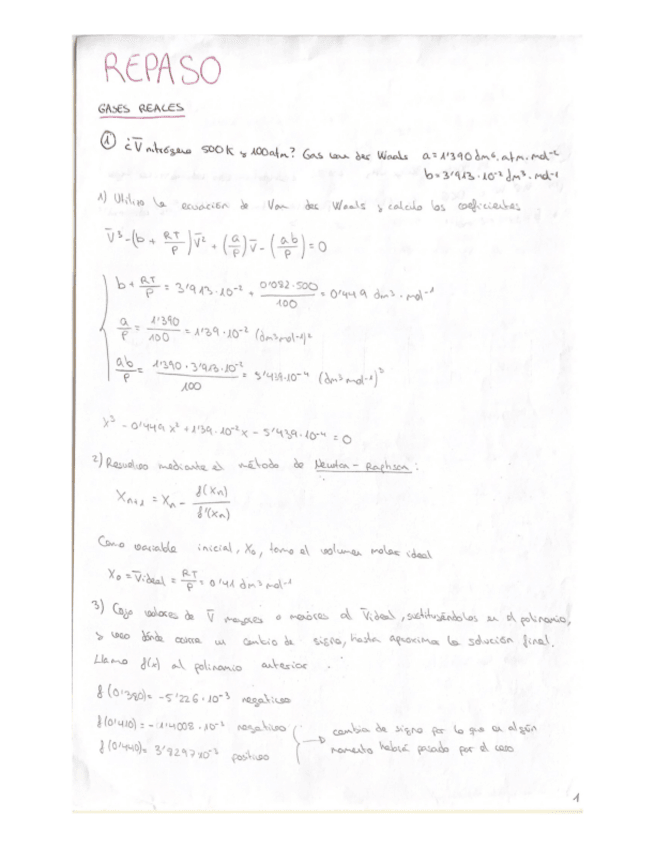 REPASO
GASES REALES
① ¿V̄ nitrógeno 500K y 100atm? Gas van der Waals a=1'390 dm⁶.atm.mol⁻²
b=3'913·10⁻² dm³.mol⁻¹
1) Utilizo la ecuación de Van der Waals y calculo los coeficientes
V̄³-(b + RT/P)V̄² + (a/P)V̄ - (ab/P)=0
b + RT/P = 3'913·10⁻² + 0'082·500/100 = 0'449 dm³·mol⁻¹
a/P = 1'390/100 = 1'39·10⁻² (dm³mol⁻¹)²
ab/P = 1'390·3'913·10⁻²/100 = 5'439·10⁻⁴ (dm³mol⁻¹)³
x³ - 0'449x² + 1'39·10⁻²x - 5'439·10⁻⁴ = 0
2) Resuelvo mediante el método de Newton-Raphson:
Xn+1 = Xn - f(Xn)/f'(Xn)
Como variable inicial, X₀, tomo el volumen molar ideal
X₀ = V̄ideal = RT/P = 0'41 dm³mol⁻¹
3) Cojo valores de V̄ mayores o menores al V̄ideal, sustituyéndolos en el polinomio,
y veo dónde ocurre un cambio de signo, hasta aproximar la solución final.
Llamo f(x) al polinomio anterior.
f(0'380)= -5'226·10⁻³ negativo
f(0'410)= -1'4008·10⁻³ negativo
cambia de signo por lo que en algún
f(0'440)= 3'8297·10⁻³ positivo
momento habrá pasado por el cero
1